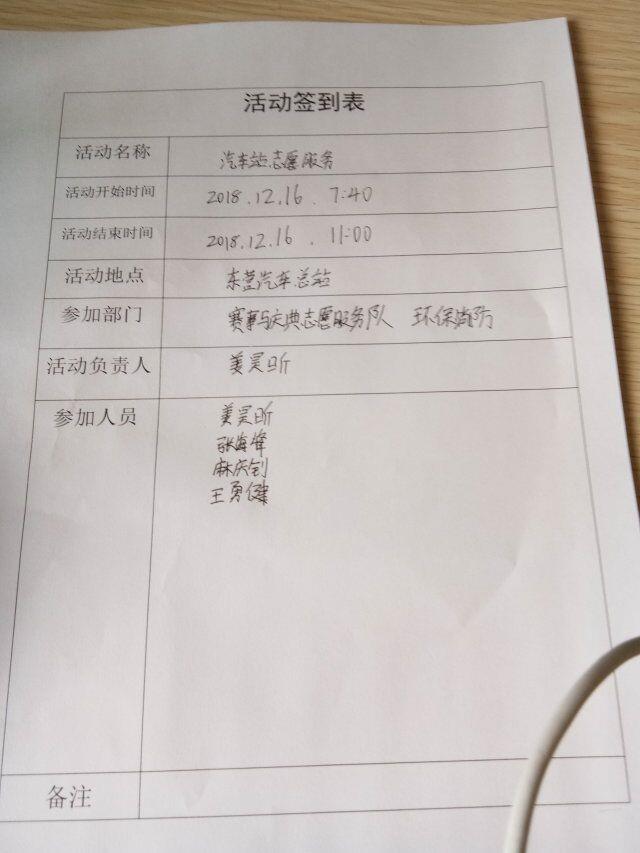 活动签到表
活动名称 汽车站志愿服务
活动开始时间 2018.12.16. 7:40
活动结束时间 2018.12.16 . 11:00
活动地点 东营汽车总站
参加部门 赛事与庆典志愿服务队 环保消防
活动负责人 姜昊昕
参加人员 姜昊昕
张海峰
麻庆钊
王勇健
备注